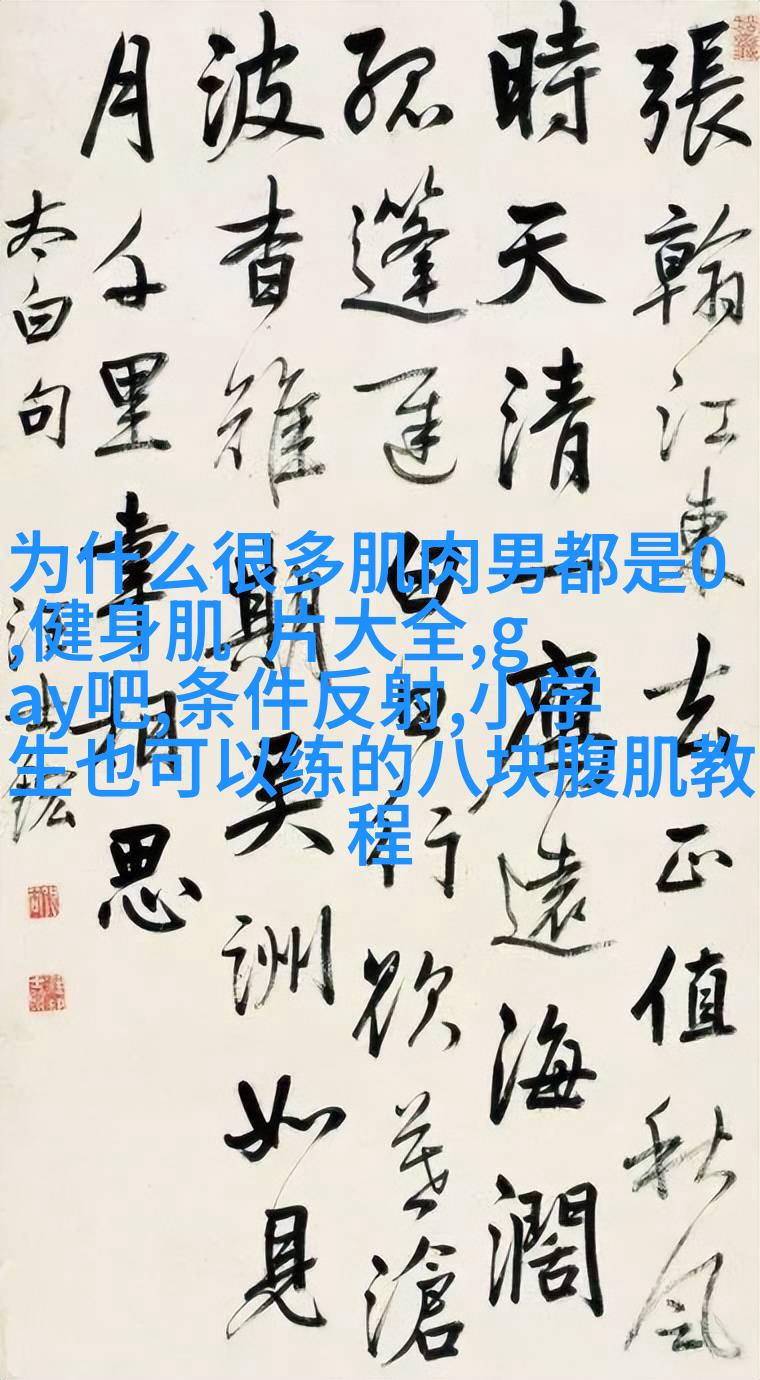 張翰江東去正值秋風
時天清一鴈遠海濶
孤蓬遲白日行欲暮滄
波杳難期吳洲如見
月千里幸相思
太白句 汪士鋐
为什么很多肌肉男都是0
,健身肌 片大全,g
ay吧,条件反射,小学
生也可以练的八块腹肌教
程